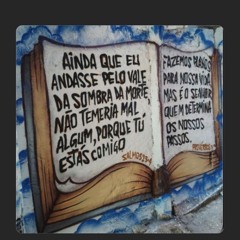 AINDA QUE EU
ANDASSE PELO VALE
DA SOMBRA DA MORTE
NÃO TEMERIA MAL
ALGUM, PORQUE TÚ
ESTÁS COMIGO
FAZEMOS PLANOS
PARA NOSSA VIDA
MAS É O SENHOR
QUEM DETERMINA
OS NOSSOS
PASSOS.